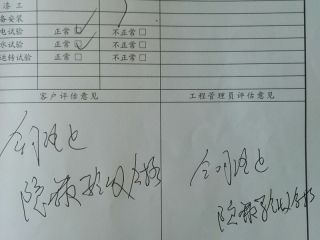 漆工
备安装
电试验 正常☐ 不正常☐
水试验 正常☐ 不正常☐
运转试验 正常☐ 不正常☐
客户评估意见 工程管理员评估意见
隐蔽验收合格
隐蔽验收合格